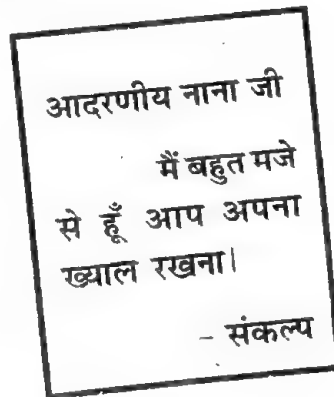 आदरणीय नाना जी
मैं बहुत मजे
से हूँ आप अपना
ख्याल रखना।
– संकल्प